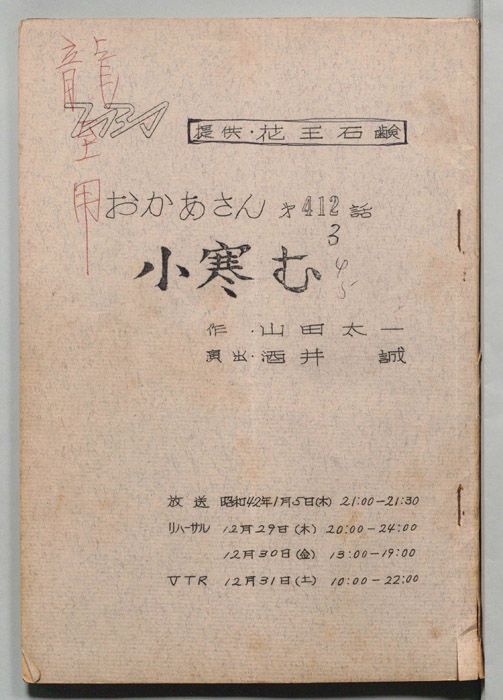 龍里用
提供・花王石鹸
おかあさん 才412話
3
4
5
小寒む
作・山田太一
演出・酒井 誠
放送 昭和42年1月5日(木) 21:00-21:30
リハーサル 12月29日(木) 20:00-24:00
12月30日(金) 13:00-19:00
VTR 12月31日(土) 10:00-22:00